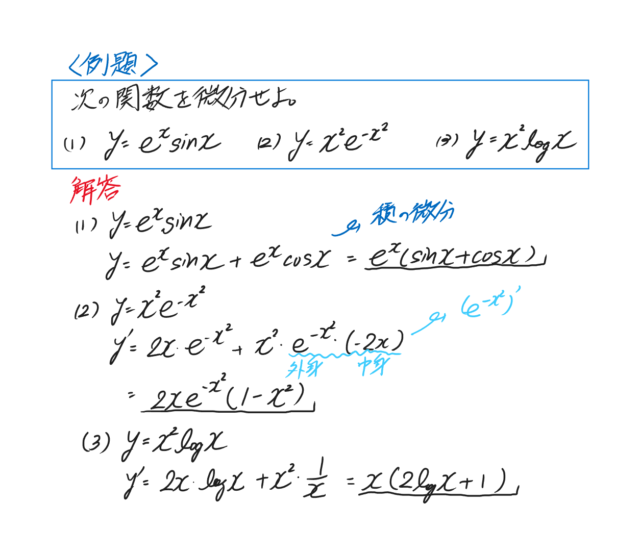 〈例題〉
次の関数を微分せよ。
(1) y=eˣsinx (2) y=x²e^{-x²} (3) y=x²logx
解答
(1) y=eˣsinx
積の微分
y=eˣsinx+eˣcosx=eˣ(sinx+cosx)
(2) y=x²e^{-x²}
(e^{-x²})'
y'=2x·e^{-x²}+x²·e^{-x²}·(-2x)
外身 中身
=2xe^{-x²}(1-x²)
(3) y=x²logx
y'=2x·logx+x²·1/x=x(2logx+1)